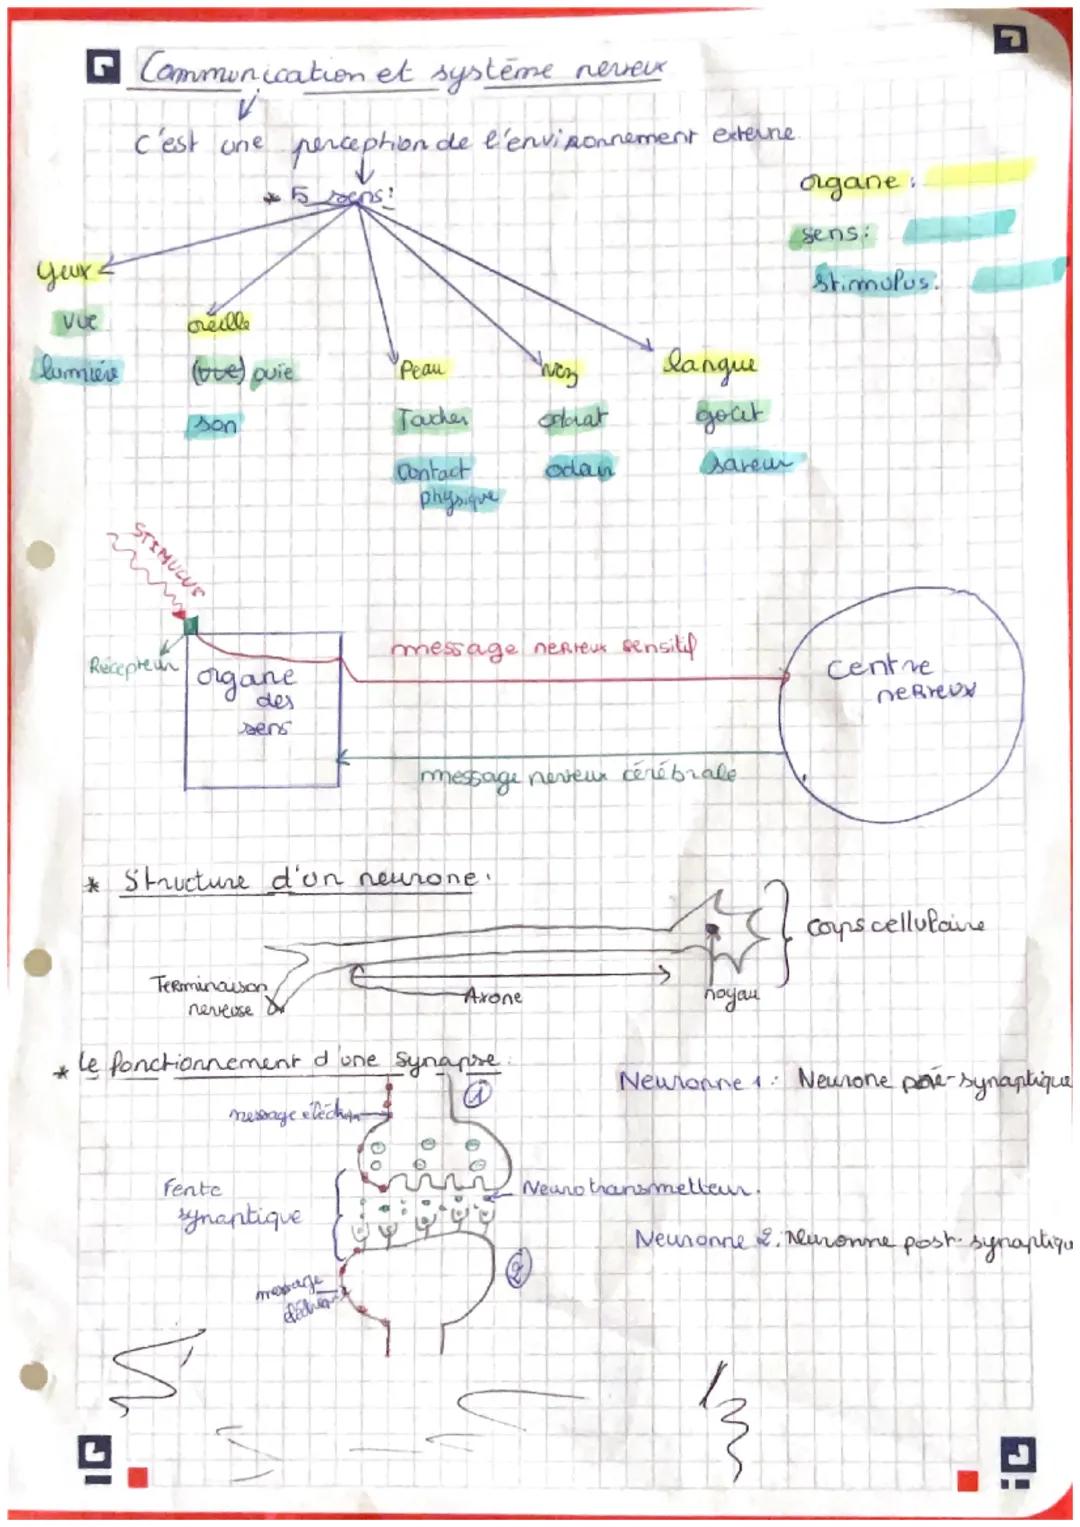 Communication et système nerveux
c'est une perception de l'environnement externe.
* 5 sens:
organe:
sens:
stimulus:
Yeux
vue
lumière
oreille
(vue) ouïe
son
Peau
Toucher
Contact
physique
Nez
odorat
odeur
langue
goût
saveur
STIMULUS
Récepteur
organe
des
sens
message nerveux sensitif
message nerveux cérébrale
Centre
nerveux
* Structure d'un neurone.
Terminaison
nerveuse
Axone
noyau
corps cellulaire
* Le fonctionnement d'une synapse.
message
1
Fente
synaptique
Neurotransmetteur.
message
2
Neuronne 1: Neurone pré-synaptique
Neuronne 2. Neuronne post-synaptiqu